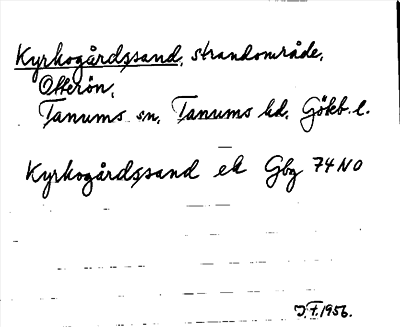 Kyrkogårdssand, strandområde,
Otterön,
Tanums sn, Tanums hd, Göteb. l.
Kyrkogårdssand ek Gbg 74 NO
J.F. 1956.